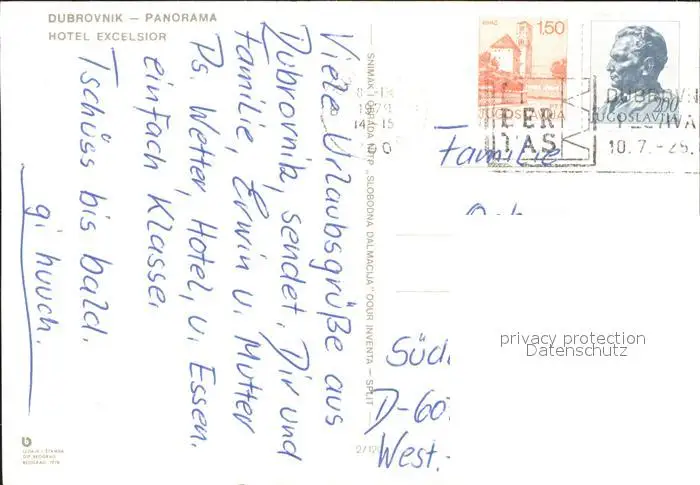 DUBROVNIK — PANORAMA
HOTEL EXCELSIOR
Viele Urlaubsgrüße aus
Dubrovnik, sendet. Dir und
Familie, Erwin u. Mutter
Ps. Wetter, Hotel, u. Essen.
einfach Klasse.
Tschüss bis bald.
SNIMAK I OBRADA NITP „SLOBODNA DALMACIJA" OOUR INVENTA — SPLIT
BEOGRAD 1978
1,50
JUGOSLAVIJA
2,00
JUGOSLAVIJA
LIBERTAS
10.7.-25.
Familie
D-60
West.-
privacy protection
Datenschutz